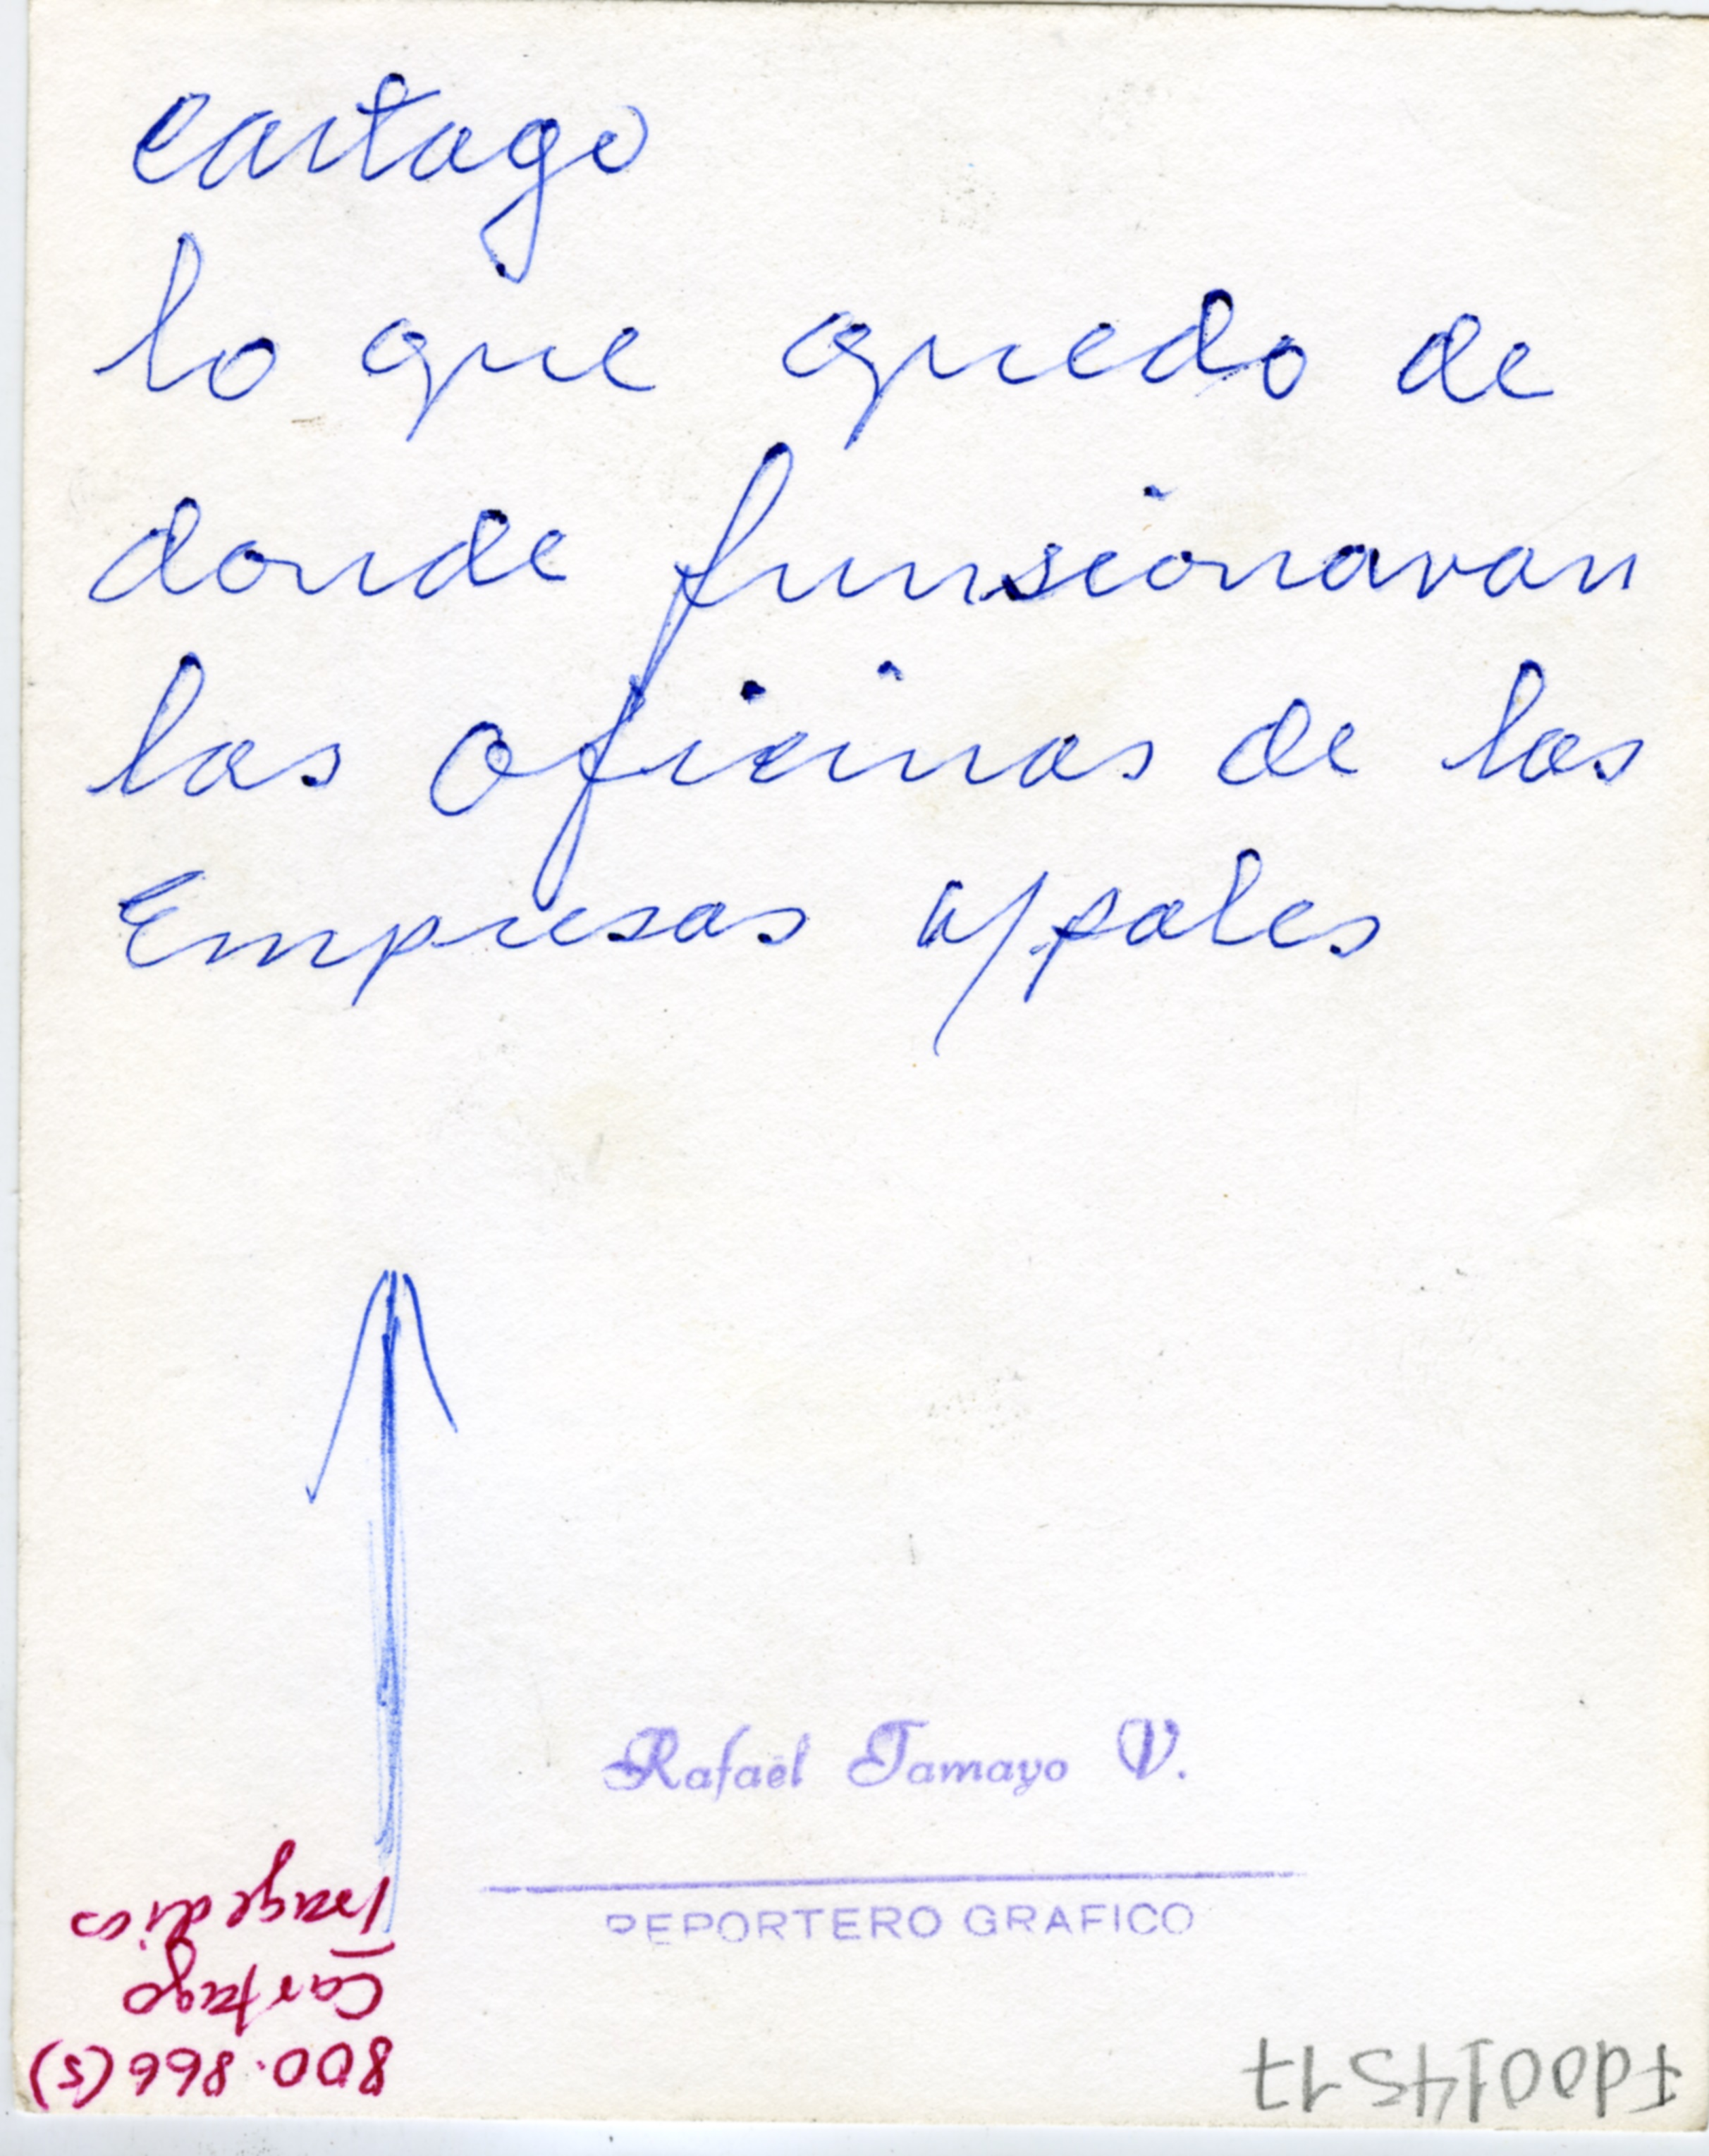 cartago
lo que quedo de
donde funsionavan
las oficinas de las
Empresas M/pales
Rafael Tamayo V.
REPORTERO GRAFICO
800.866(s)
Cartago
Tragedias
Fd0014517